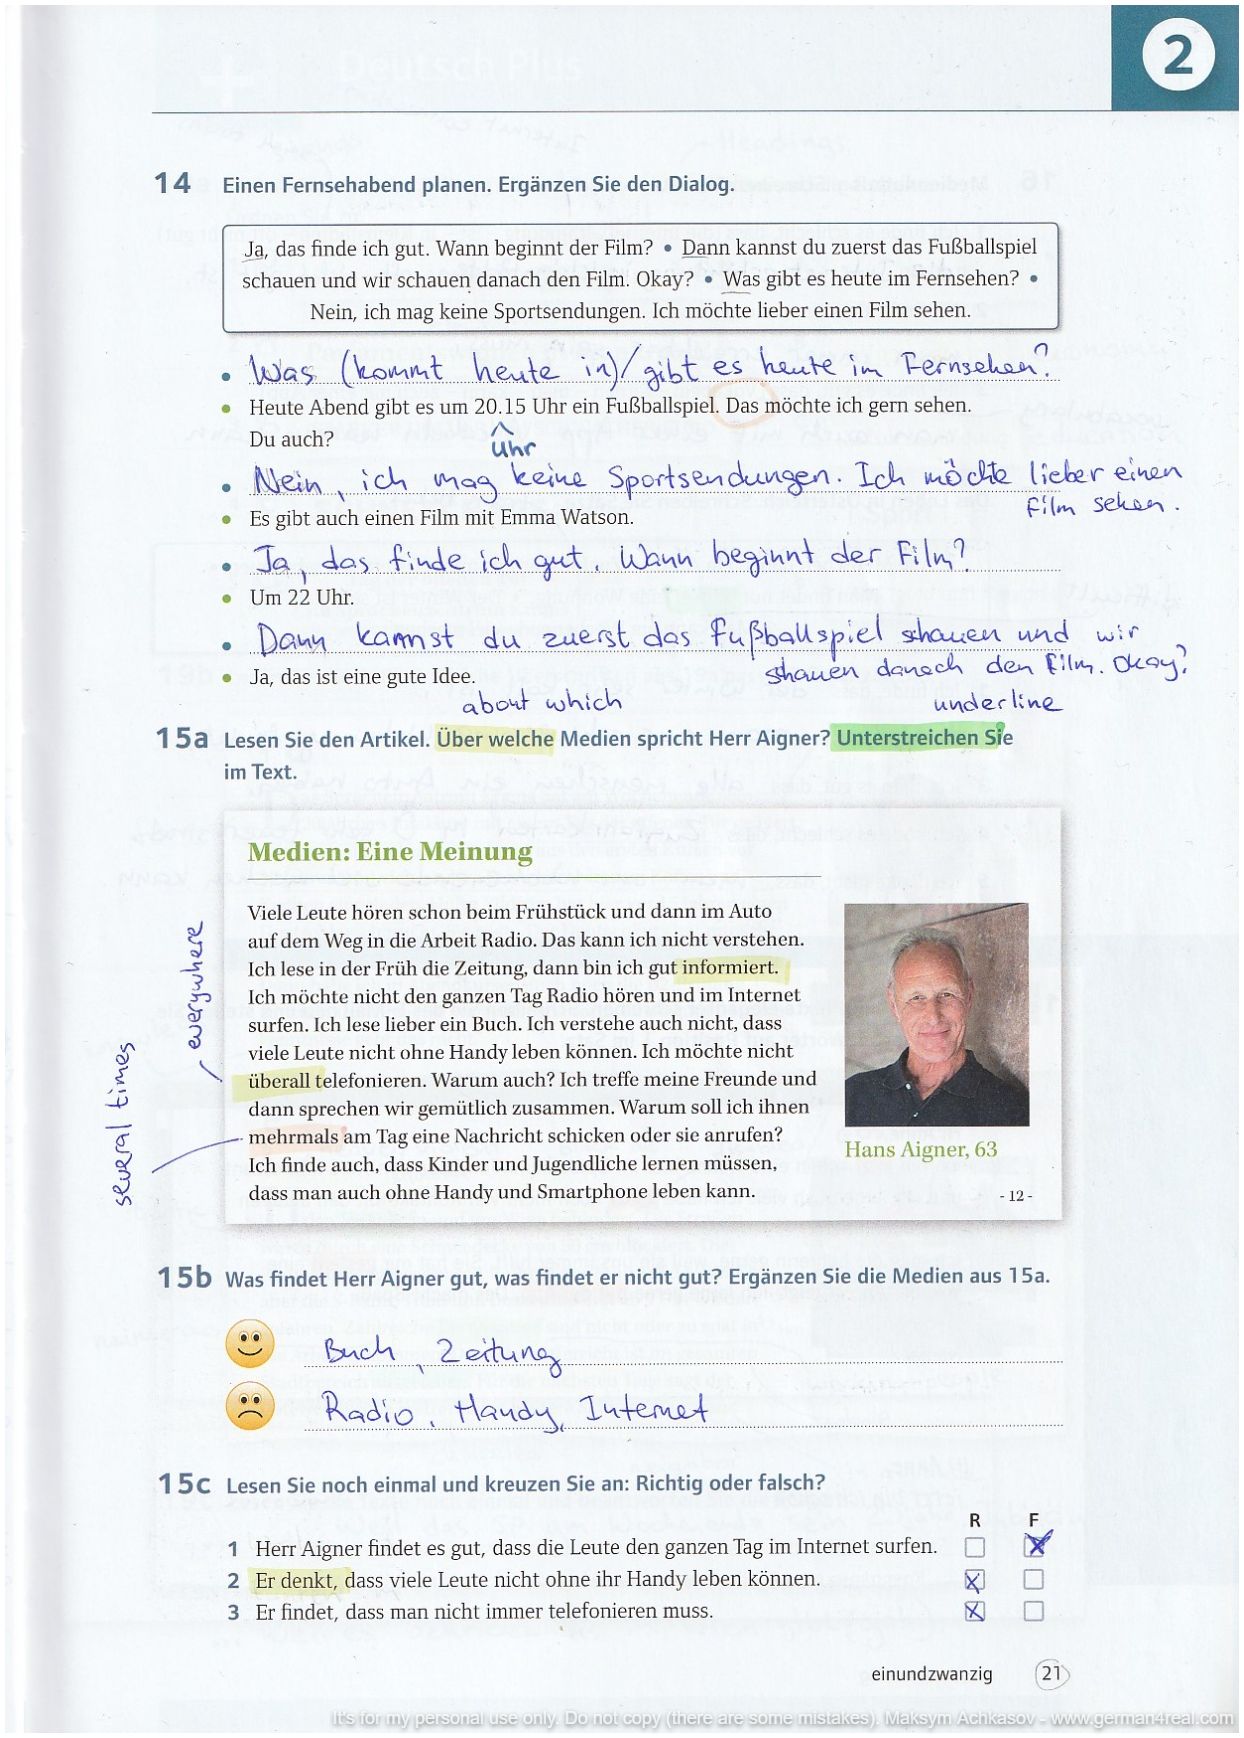 2
14 Einen Fernsehabend planen. Ergänzen Sie den Dialog.
Ja, das finde ich gut. Wann beginnt der Film? • Dann kannst du zuerst das Fußballspiel
schauen und wir schauen danach den Film. Okay? • Was gibt es heute im Fernsehen? •
Nein, ich mag keine Sportsendungen. Ich möchte lieber einen Film sehen.
• Was (kommt heute in)/gibt es heute im Fernsehen?
• Heute Abend gibt es um 20.15 Uhr ein Fußballspiel. Das möchte ich gern sehen.
Du auch?
Uhr
• Nein, ich mag keine Sportsendungen. Ich möchte lieber einen
Film sehen.
• Es gibt auch einen Film mit Emma Watson.
• Ja, das finde ich gut. Wann beginnt der Film?
• Um 22 Uhr.
• Dann kannst du zuerst das Fußballspiel schauen und wir
schauen danach den Film. Okay?
• Ja, das ist eine gute Idee.
about which
underline
15a Lesen Sie den Artikel. Über welche Medien spricht Herr Aigner? Unterstreichen Sie
im Text.
Medien: Eine Meinung
Viele Leute hören schon beim Frühstück und dann im Auto
auf dem Weg in die Arbeit Radio. Das kann ich nicht verstehen.
Ich lese in der Früh die Zeitung, dann bin ich gut informiert.
Ich möchte nicht den ganzen Tag Radio hören und im Internet
surfen. Ich lese lieber ein Buch. Ich verstehe auch nicht, dass
viele Leute nicht ohne Handy leben können. Ich möchte nicht
überall telefonieren. Warum auch? Ich treffe meine Freunde und
dann sprechen wir gemütlich zusammen. Warum soll ich ihnen
mehrmals am Tag eine Nachricht schicken oder sie anrufen?
Ich finde auch, dass Kinder und Jugendliche lernen müssen,
dass man auch ohne Handy und Smartphone leben kann.
everywhere
several times
Hans Aigner, 63
- 12 -
15b Was findet Herr Aigner gut, was findet er nicht gut? Ergänzen Sie die Medien aus 15a.
Buch, Zeitung
Radio, Handy, Internet
15c Lesen Sie noch einmal und kreuzen Sie an: Richtig oder falsch?
R F
1 Herr Aigner findet es gut, dass die Leute den ganzen Tag im Internet surfen.
2 Er denkt, dass viele Leute nicht ohne ihr Handy leben können.
3 Er findet, dass man nicht immer telefonieren muss.
einundzwanzig 21
It's for my personal use only. Do not copy (there are some mistakes). Maksym Achkasov - www.german4real.com